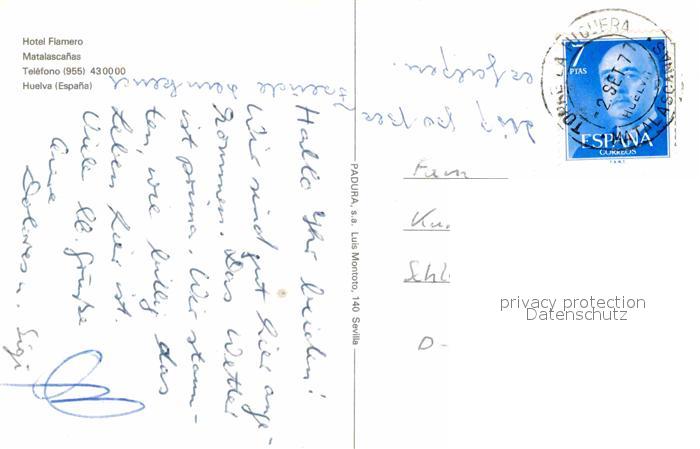 Hotel Flamero
Matalascañas
Teléfono (955) 430000
Huelva (España)
Hallo Ihr beiden!
Wir sind gut hier ange-
kommen. Das Wetter
ist prima. Wir staun-
ten, wie billig das
Leben hier ist.
Viele lb. Grüße
Eure
Dolores u. Sigi
PADURA, s.a. Luis Montoto, 140 Sevilla
7
PTAS
ESPAÑA
CORREOS
TORRE LA HIGUERA
2 SET. 77
HUELVA
MATALASCAÑAS
Fam
Ku.
Schl
D-
privacy protection
Datenschutz